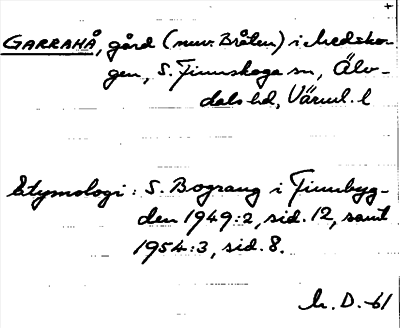 GARRAHÅ, gård (nuv. Bråten) i Medsko-
gen, S. Finnskoga sn, Älv-
dals hd, Värml. l
Etymologi: S. Bograng i Finnbyg-
den 1949:2, sid. 12, samt
1954:3, sid. 8.
M. D. -61